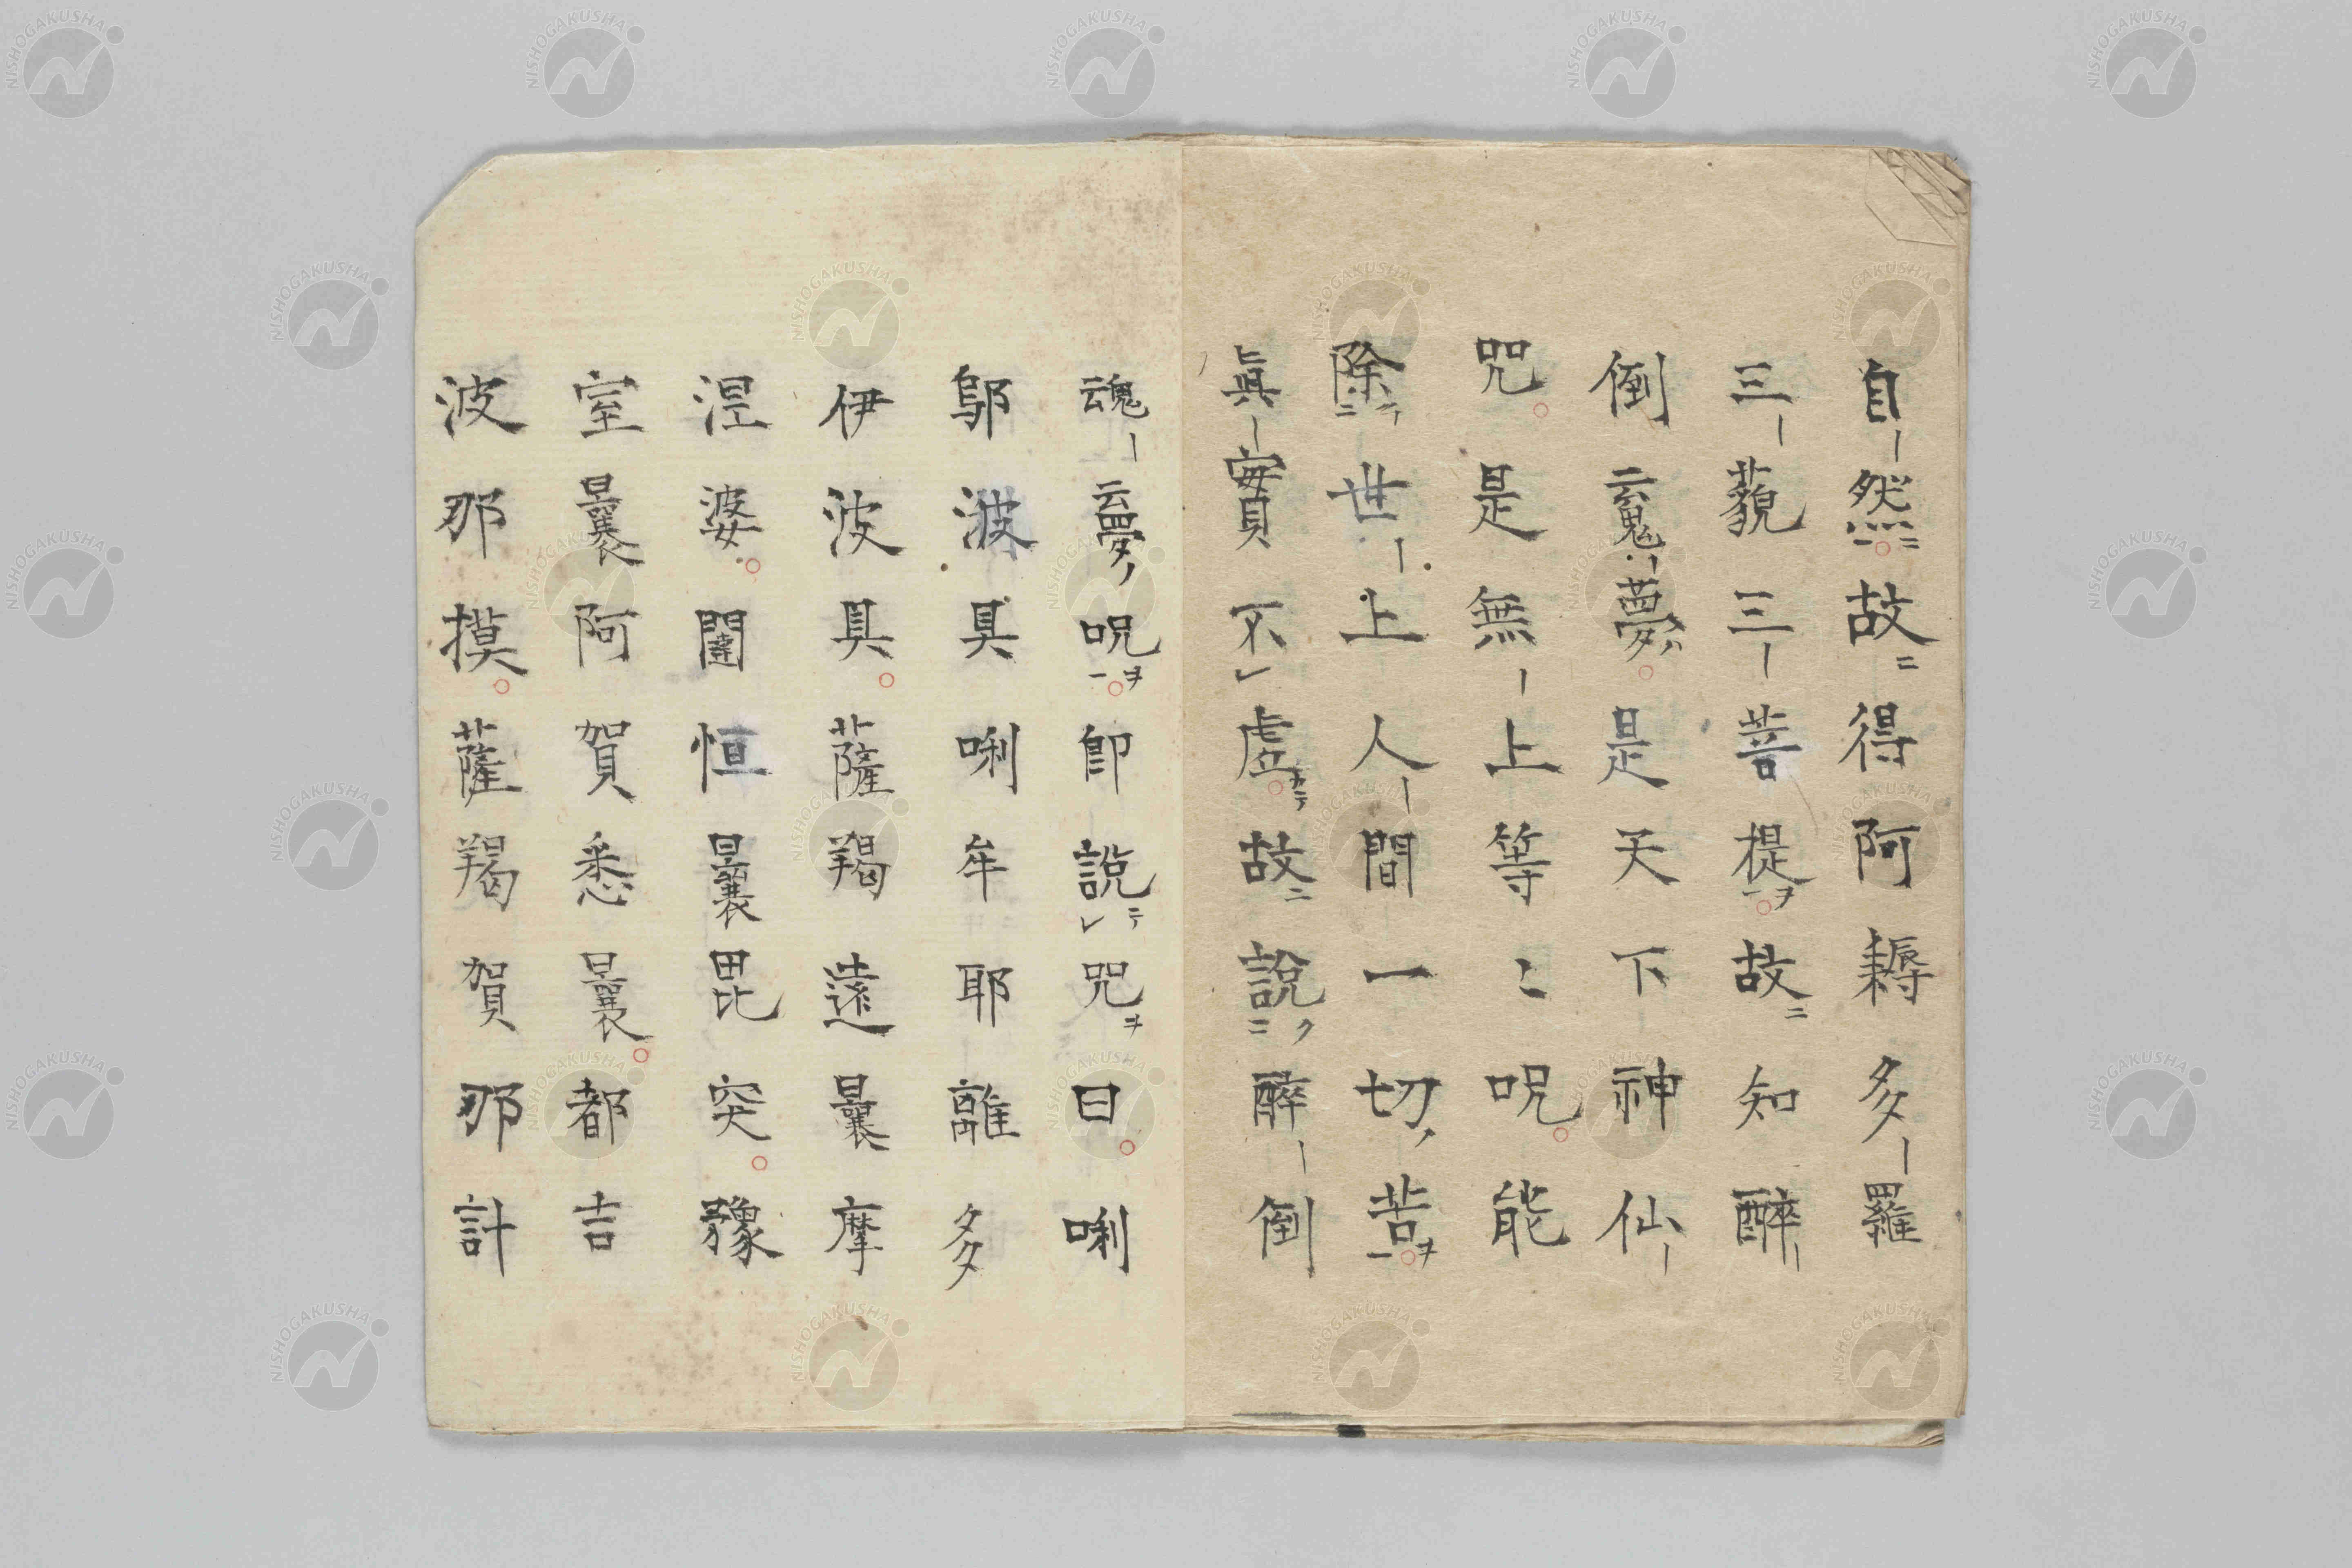 自然故得阿耨多羅
三藐三菩提故知醉
倒魂夢是天下神仙
咒是無上等〻呪能
除世上人間一切苦
眞實不虛故說醉倒
魂夢呪即說咒曰唎
鄔波具唎牟耶離多
伊波具薩羯遠曩摩
涅婆闥恒曩毘突豫
室曩阿賀悉曩都吉
波那摸薩羯賀那計
NISHOGAKUSHA